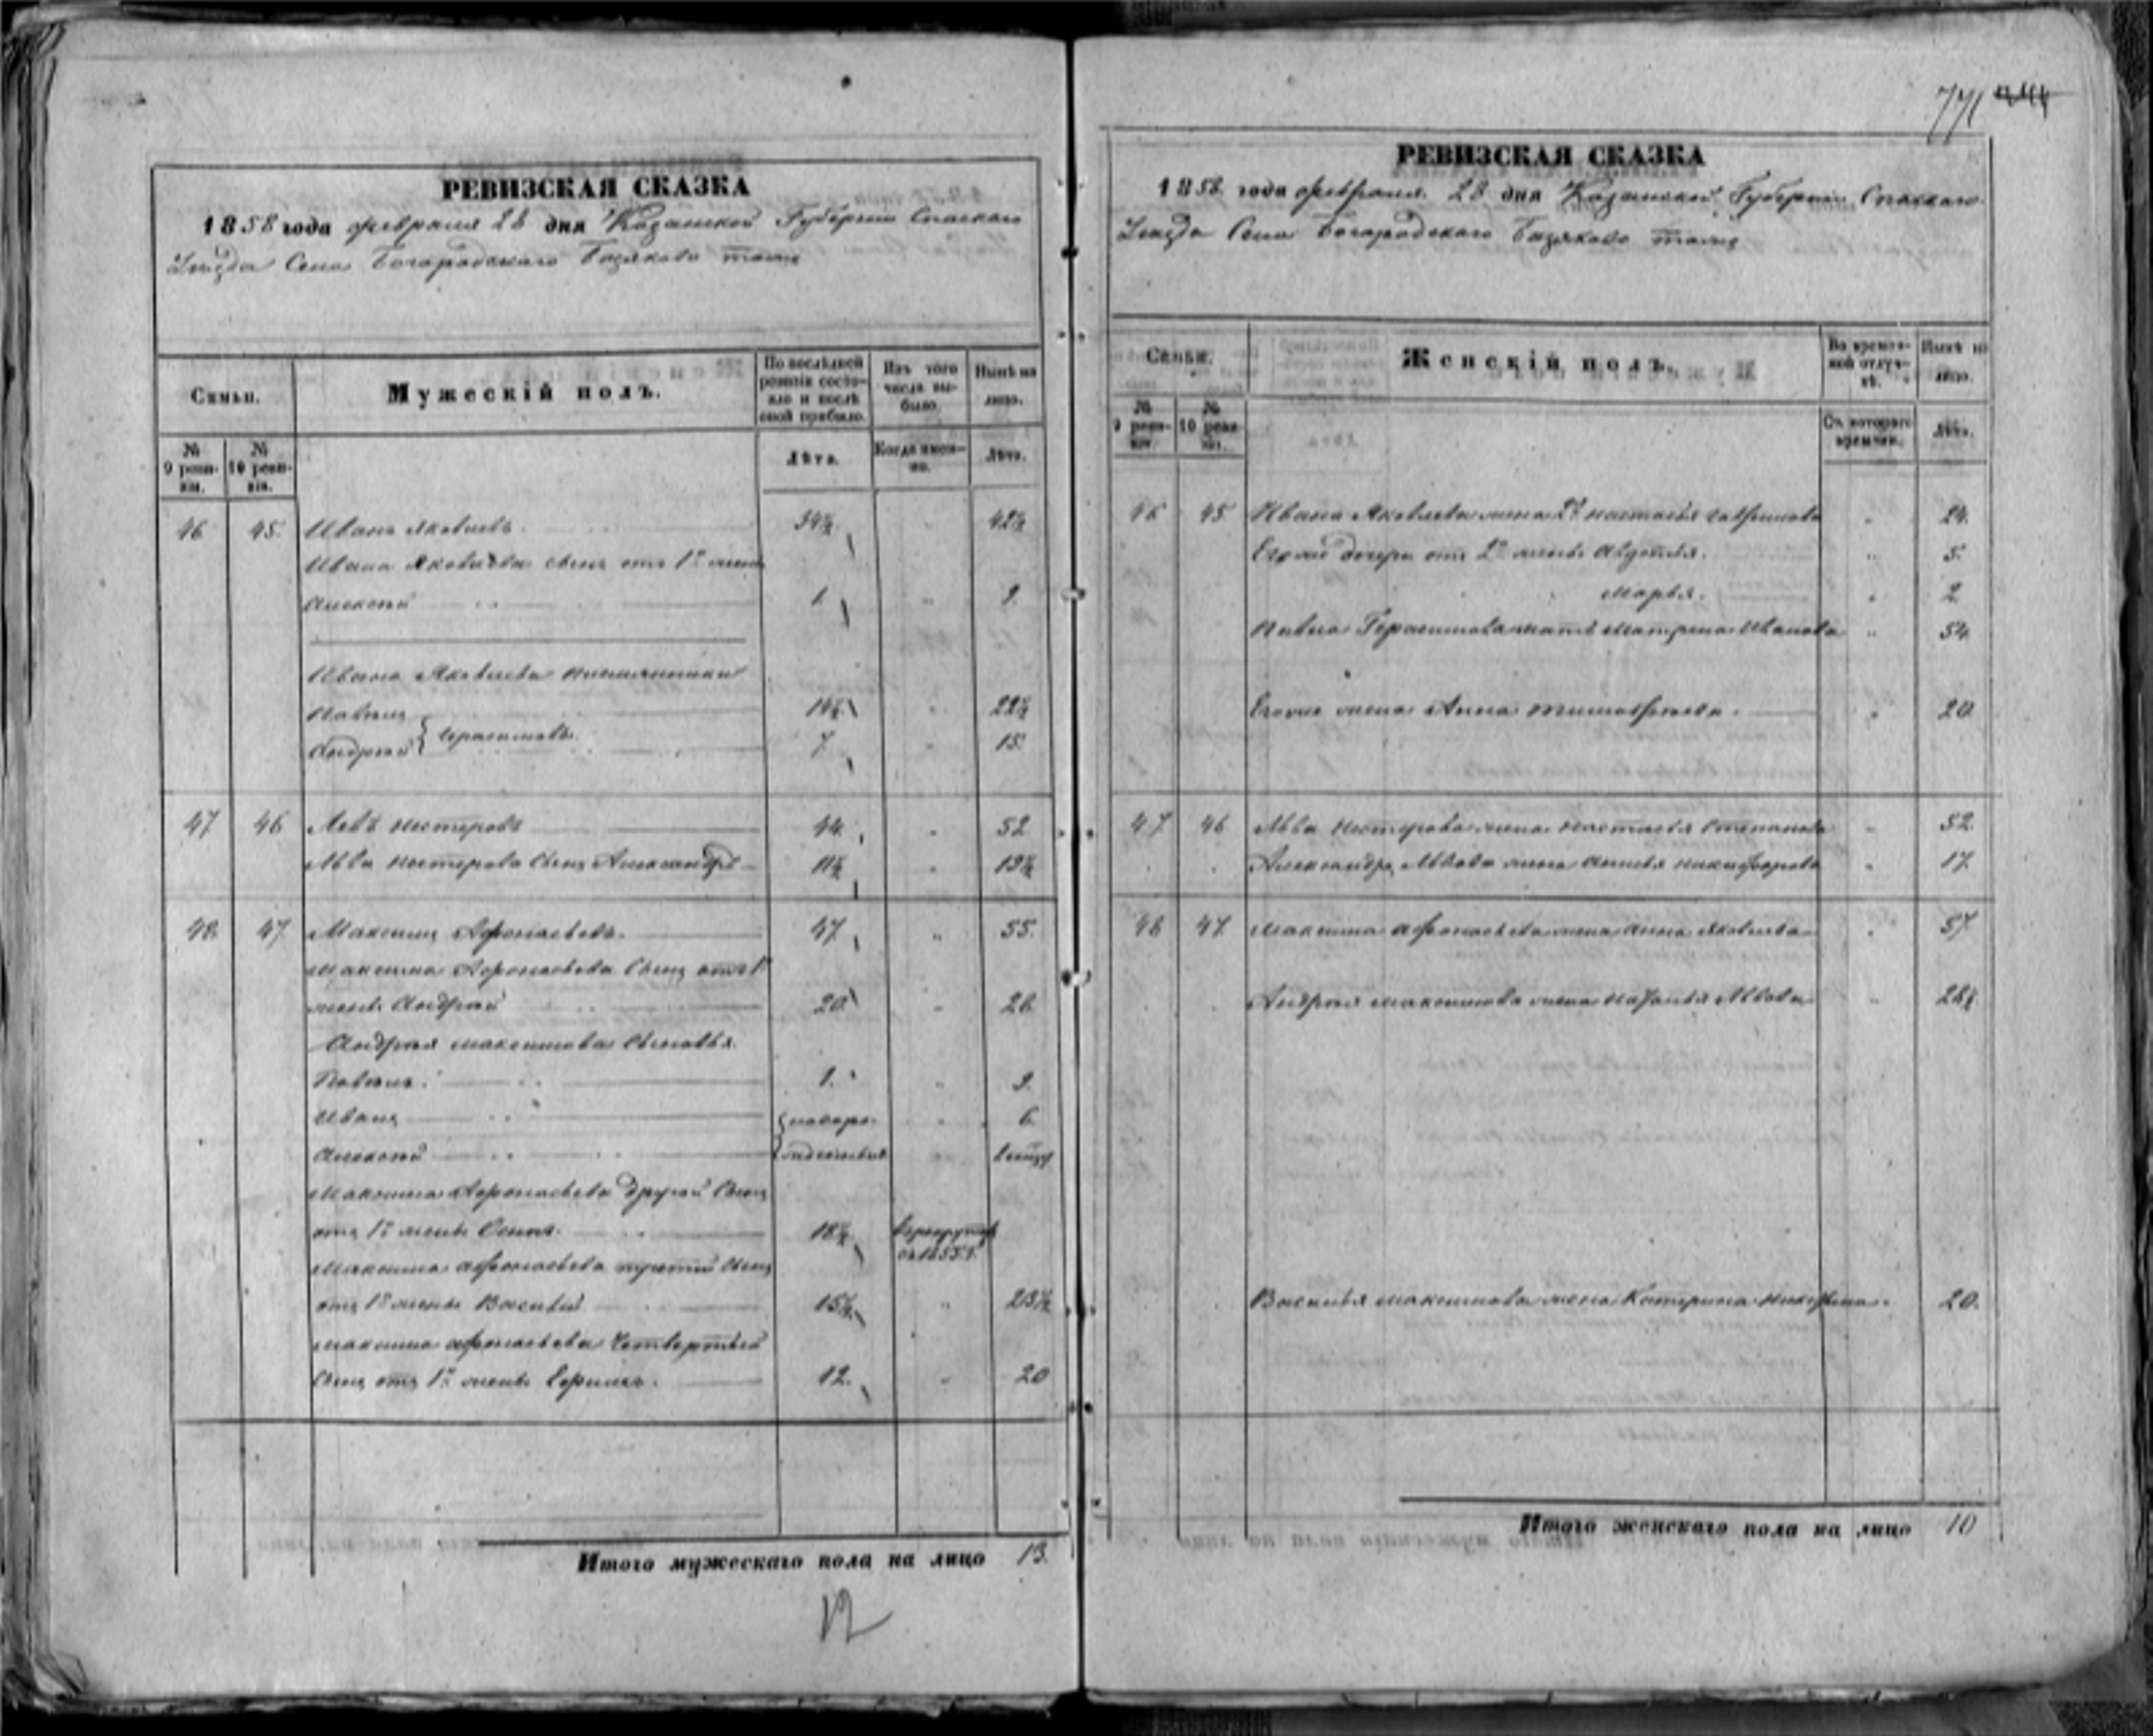 РЕВИЗСКАЯ СКАЗКА
1858 года февраля 28 дня Казанской Губернии Спаскаго
Уезда Села Богородскаго Базяково тожъ
Семьи.
Мужескій полъ.
По послѣдней ревизіи состояло и послѣ оной прибыло.
Изъ того числа выбыло.
Нынѣ на лицо.
№ 9 ревизіи.
№ 10 ревизіи.
Лѣта.
Когда именно.
Лѣта.
46 45. Иванъ Яковлевъ. 34½ 42½
Ивана Яковлева сынъ отъ 1й жены
Алексѣй 1 9.
Ивана Яковлева племянники
Павелъ 14½ 22½
Герасимовы
Андрей 7 15.
47 46 Левъ Нестеровъ 44 52
Льва Нестерова сынъ Александръ 11½ 19½
48. 47. Максимъ Афонасьевъ. 47 55.
Максима Афонасьева сынъ отъ 1й
жены Андрей 20 28
Андрея Максимова сыновья.
Павелъ. 1. 9.
Иванъ новоро- 6
Алексѣй жденные
Максима Афонасьева другой сынъ
отъ 1й жены Осипъ. 18½ въ рекруты
въ 1855 г.
Максима Афонасьева третій сынъ
отъ 1й жены Василий 15½ 23½
Максима Афонасьева четвертый
сынъ отъ 1й жены Ефимъ. 12. 20
Итого мужескаго пола на лицо 13.
12
771
РЕВИЗСКАЯ СКАЗКА
1858. года февраля 28 дня Казанской Губернии Спаскаго
Уезда Села Богородскаго Базяково тожъ
Семьи.
Женскій полъ.
Во временной отлучкѣ.
Нынѣ на лицо.
№ 9 ревизіи.
№ 10 ревизіи.
Съ котораго времени.
Лѣта.
46 45 Ивана Яковлева жена 2я Настасья Гаврилова 24.
Егоже дочери отъ 2й жены Авдотья. 5.
Марья. 2
Павла Герасимова мать Матрена Иванова 54.
Егоже жена Анна Тимофеева. 20
47 46 Льва Нестерова жена Настасья Степанова 52.
Александра Львова жена Анисья Никифорова 17.
48 47 Максима Афонасьева жена Анна Яковлева 57.
Андрея Максимова жена Наталья Львова 28½
Василья Максимова жена Катерина 20.
Итого женскаго пола на лицо 10